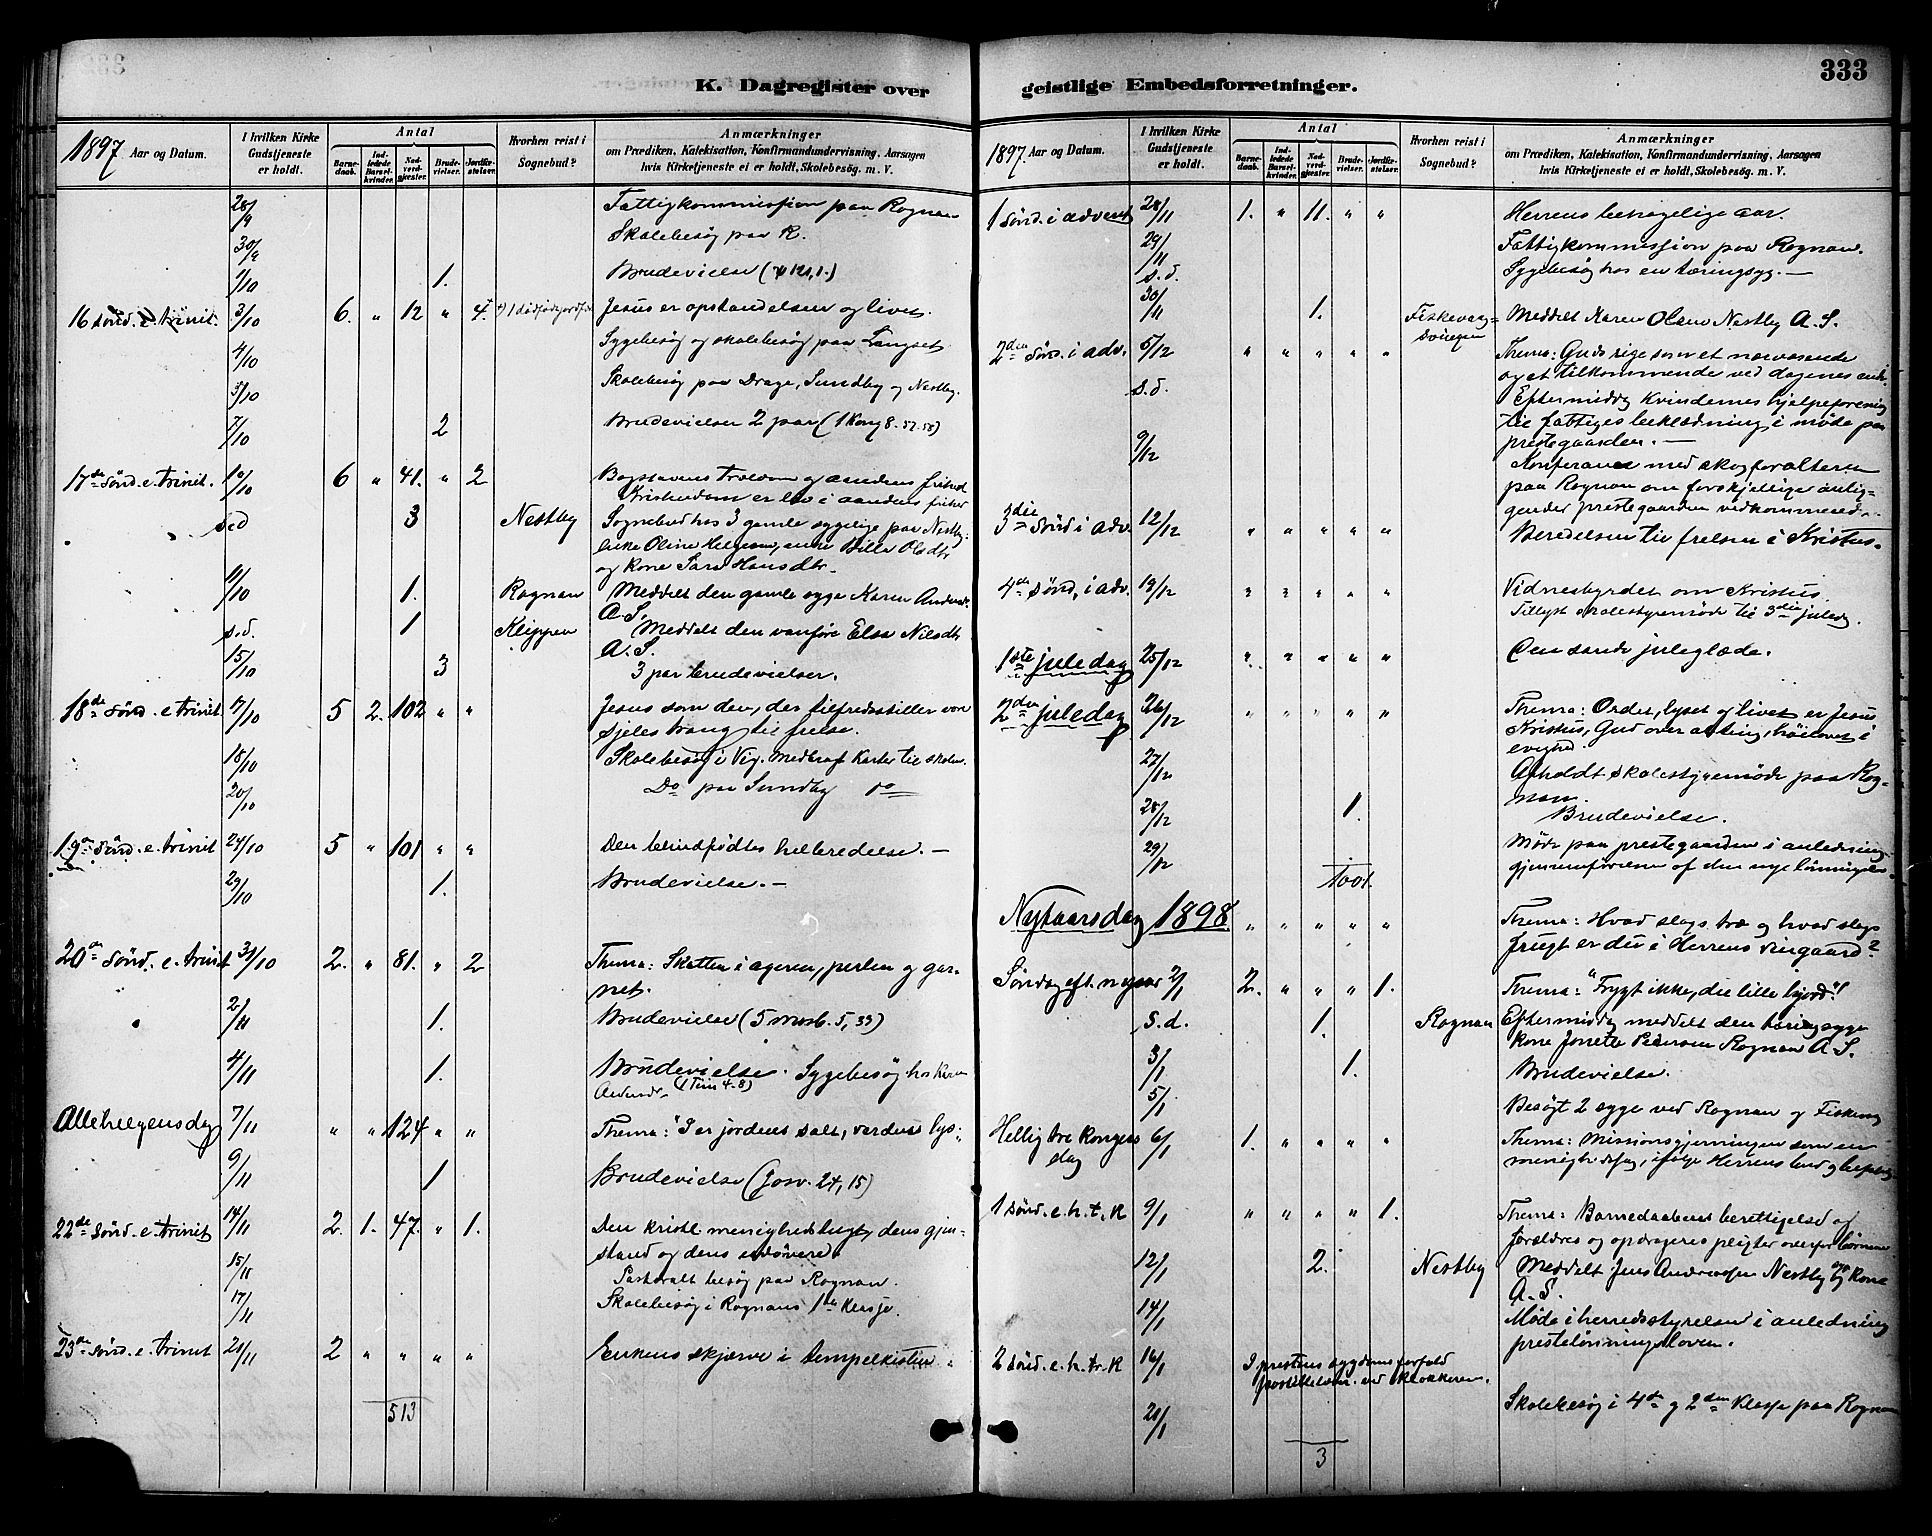 333
K. Dagregister over
geistlige Embedsforretninger.
1897 Aar og Datum.
I hvilken Kirke Gudstjeneste er holdt.
Antal
Barnedaab.
Indledede Barselkvinder.
Nadverdgjester.
Brudevielser.
Jordfæstelser.
Hvorhen reist i Sognebud?
Anmærkninger
om Prædiken, Katekisation, Konfirmandundervisning, Aarsagen
hvis Kirketjeneste ei er holdt, Skolebesøg. m. V.
28/9 Fattigkommission paa Rognan
30/9 Skolebesøg paa R.
1/10 1. Brudevielse
16 sønd. e. trinit. 3/10 6. " 12 " 4. Jesus er opstandelsen og livet.
4/10 Sygebesøg og skolebesøg paa Langset
3/10 Skolebesøg paa Drage, Sundby og Nestby.
7/10 2 Brudevielser 2 par (1 Kong 8. 57. 58)
17de sønd. e. trinit. 10/10 6 " 41. " 2 Bogstavens trældom og aandens frihed
Kristendom er liv i aandens frihed
s.d 3 Nestby Sognebud hos 3 gamle sygelige paa Nestby:
enke Oline Helgesen, enke Olsdtr
og kone Sara Hansdtr.
11/10 1. Rognan Meddelt den gamle syge Karen Andersdr
A. S.
s.d. 1 Klippen Meddelt den vanføre Elsa Nilsdtr
A. S.
15/10 3 3 par brudevielser.
18de sønd. e trinit. 17/10 5 2. 102 " " Jesus som den, der tilfredsstiller vor
sjeles trang til frelse.
18/10 Skolebesøg i Vig. Medbragt karter til skolen.
20/10 Do paa Sundby do
19de sønd. e. trinit 24/10 5 " 101 " " Den blindfødtes helbredelse. —
29/10 1. Brudevielse. —
20de sønd. e. trinit 31/10 2. " 81. " 2 Thema: Skatten i ageren, perlen og gar-
net.
2/11 1. Brudevielse (5 Mosb. 5, 33)
4/11 1. Brudevielse. Sygebesøg hos Karen
Andersdr. (1 Tim 4-8)
Allehelgensdag 7/11 " " 124 " " Thema: "I er jordens salt, verdens lys".
9/11 1 Brudevielse (Josv. 24, 15)
22de sønd. e trinit 14/11 2. 1. 47. " 1. Den kristl. menighedstugt, dens gjen-
stand og dens udøvere.
15/11 Pastoralt besøg paa Rognan.
17/11 Skolebesøg i Rognans 1ste klasse.
23de sønd. e. trinit 21/11 2 " " " " Enkens skjærv i tempelkisten.
513
1897 Aar og Datum.
I hvilken Kirke Gudstjeneste er holdt.
Antal
Barnedaab.
Indledede Barselkvinder.
Nadverdgjester.
Brudevielser.
Jordfæstelser.
Hvorhen reist i Sognebud?
Anmærkninger
om Prædiken, Katekisation, Konfirmandundervisning, Aarsagen
hvis Kirketjeneste ei er holdt, Skolebesøg. m. V.
1 sønd. i advent 28/11 1. " 11. " " Herrens behagelige aar.
29/11 Fattigkommission paa Rognan.
s.d. Sygebesøg hos en tæringsyg. —
30/11 1. Fiskevaag- Meddelt Karen Olsen Nestby A. S.
2den sønd. i adv. 5/12 " " " " " Thema: Guds rige som et nærværende
og et tilkommende ved dagenes ende.
s.d. Eftermiddag Kvindernes hjelpeforening
til fattiges beklædning i møde paa
prestegaarden. —
9/12 Konferance med skogforvalteren
paa Rognan om forskjellige anlig-
gender prestegaarden vedkommende.
3die sønd i adv. 12/12 " " " " " Beredelsen til frelsen i Kristus.
4de sønd, i adv. 19/12 " " " " " Vidnesbyrdet om Kristus.
Tillyst skolestyremøde til 3die juledag.
1ste juledag 25/12 " " " " " Den sande juleglæde.
2den juledag 26/12 " " " " " Thema: Ordet, lyset og livet er Jesus
Kristus, Gud over alting, høilovet i
evighed.
27/12 Afholdt skolestyremøde paa Rog-
nan.
28/12 1. Brudevielse.
29/12 Møde paa prestegaarden i anledning
gjennemførelsen af den nye lønningslov.
1001.
Nytaarsdag 1898 " " " " " Thema: Hvad slags træ og hvad slags
frugt er du i Herrens vingaard?
Søndag eft. nyaar 2/1 2. " " " 1. Thema: "Frygt ikke, du lille hjord!"
s.d. 1. Rognan Eftermiddag meddelt den tæringsyge
kone Jonette Rognan A S.
3/1 1. Brudevielse.
5/1 Besøgt 2 syge ved Rognan og Fiskevaag
Hellig tre kongers 6/1 1. " " " " Thema: Missionsgjerningen som en
dag menigheds, ifølge Herrens bud og
1 sønd. e. h. t. K 9/1 " " " " 1. Thema: Barnedaabens berettigelse og
forældres og opdrageres pligter overfor børnene
12/1 2. Nestby Meddelt Jens Andreassen Nestby og kone
A. S.
14/1 Møde i herredsstyrelsen i anledning
prestelønningsloven.
2 sønd. e. h. tr. K 16/1 I prestens sygdomsforfald
ved klokkeren.
21/1 Skolebesøg i 4de og 2den klasse paa Rognan
3